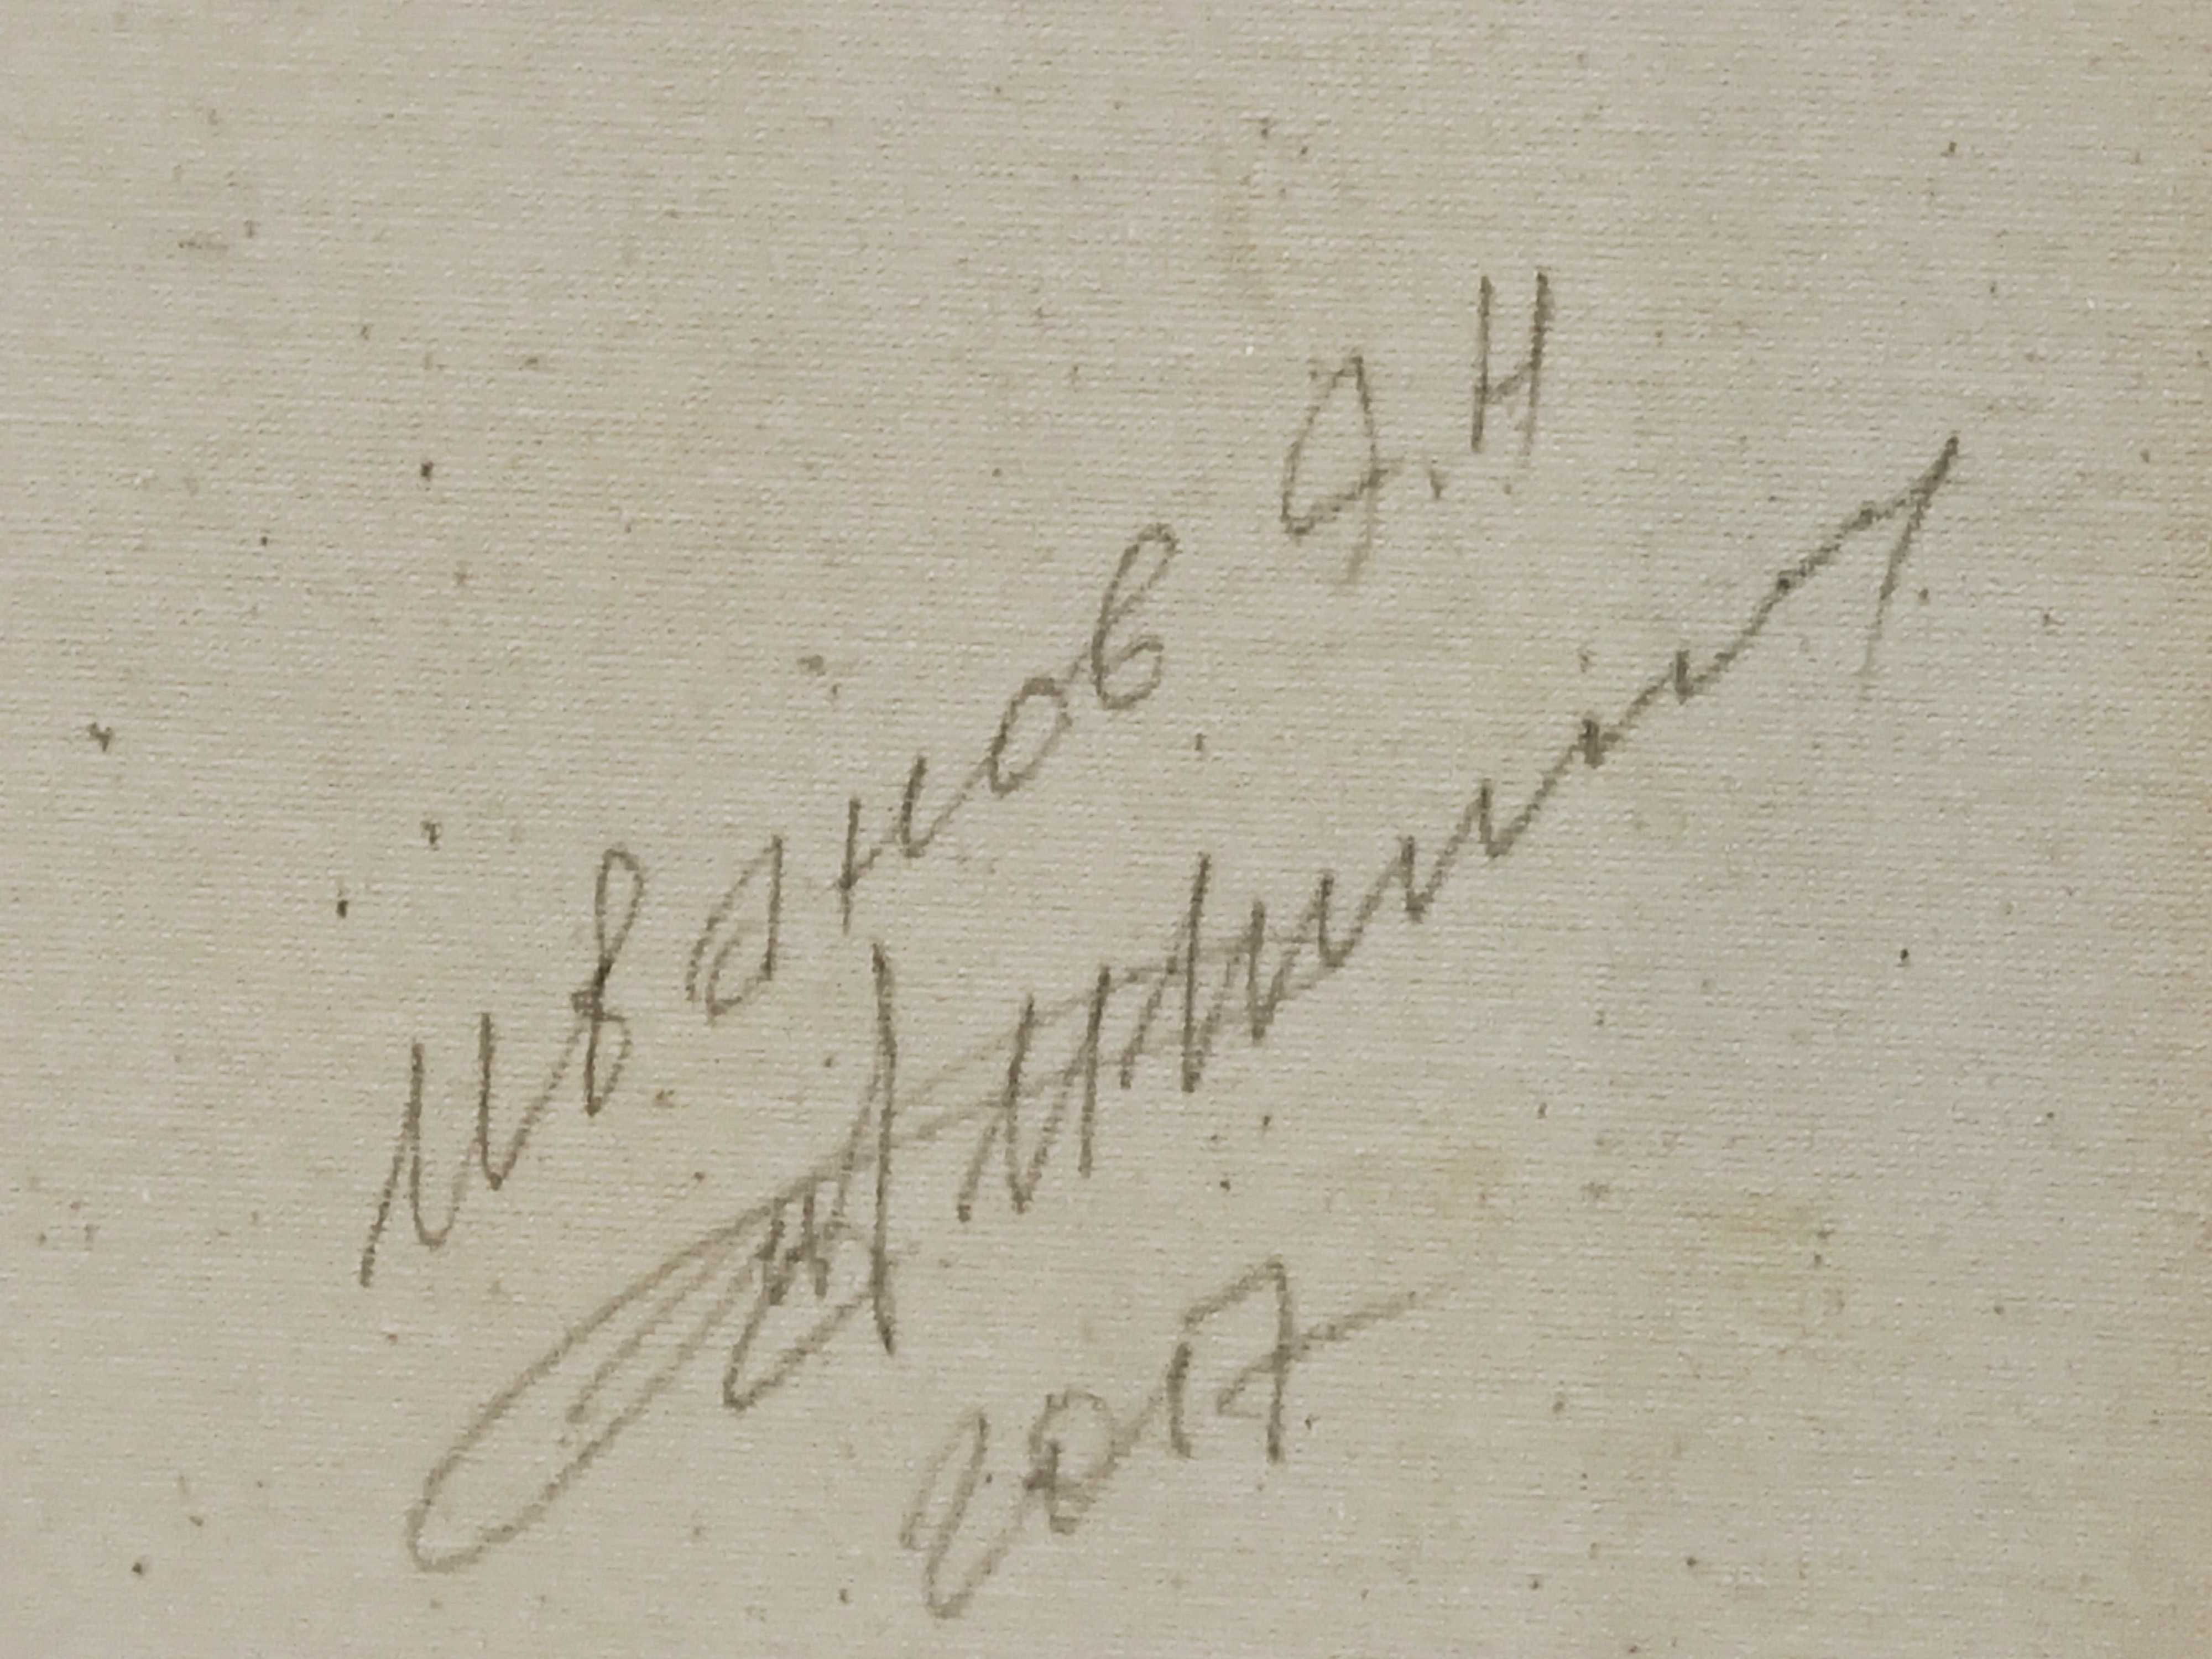 Иванов А.Н
2017